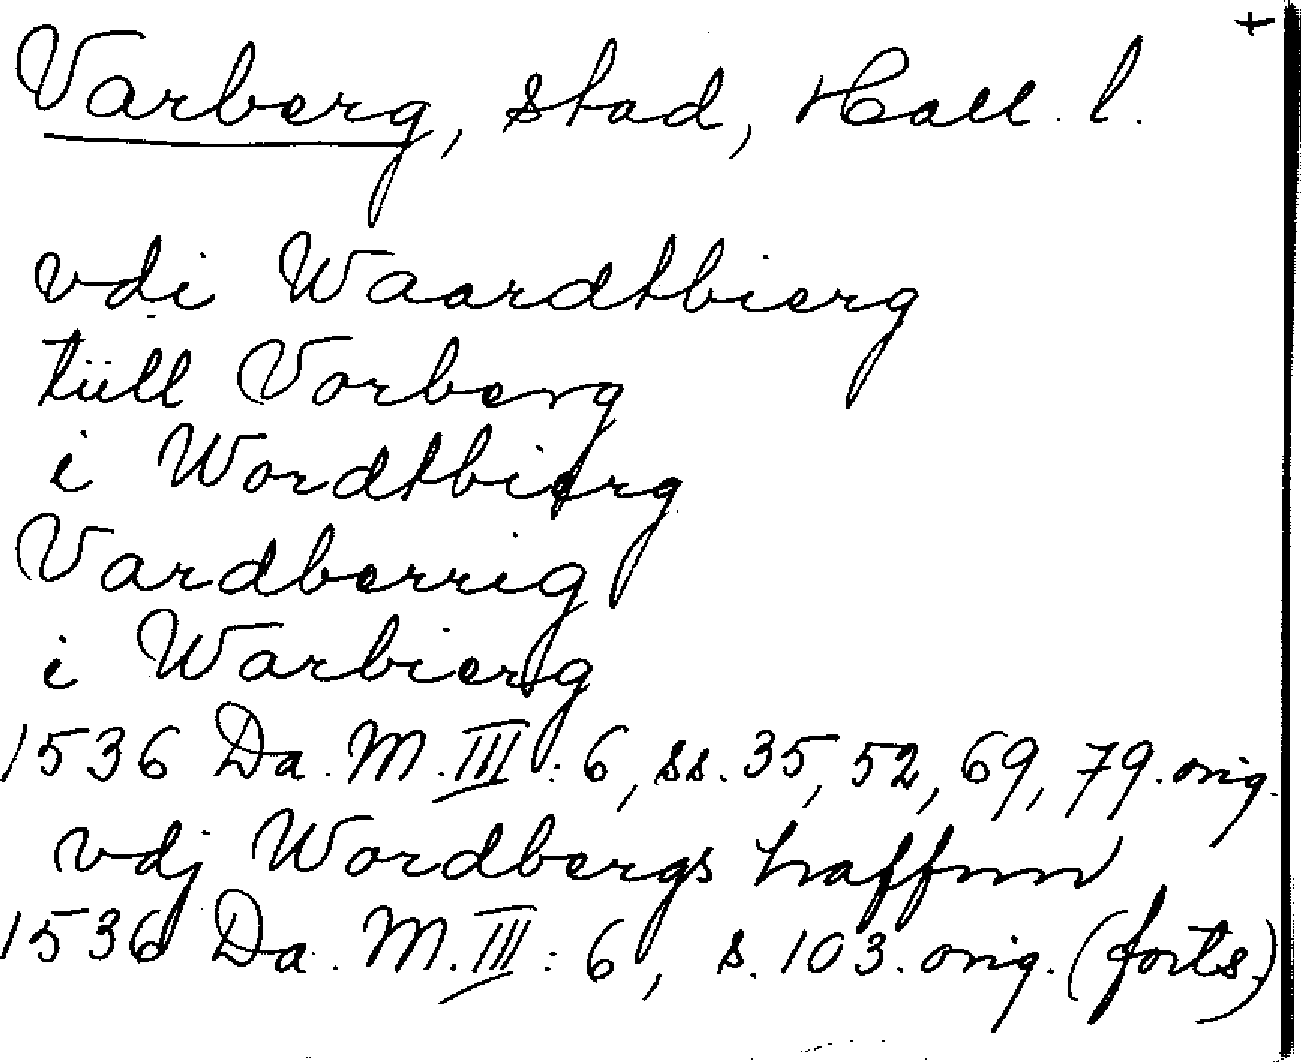 Varberg, stad, Hall. l.
vdi Waardtbierg
tüll Vorberg
i Wordtbierg
Vardberrig
i Warbierg
1536 Da. M. III: 6, ss. 35, 52, 69, 79. orig.
vdj Wordbergs haffnn
1536 Da. M. III: 6, s. 103. orig. (forts.)